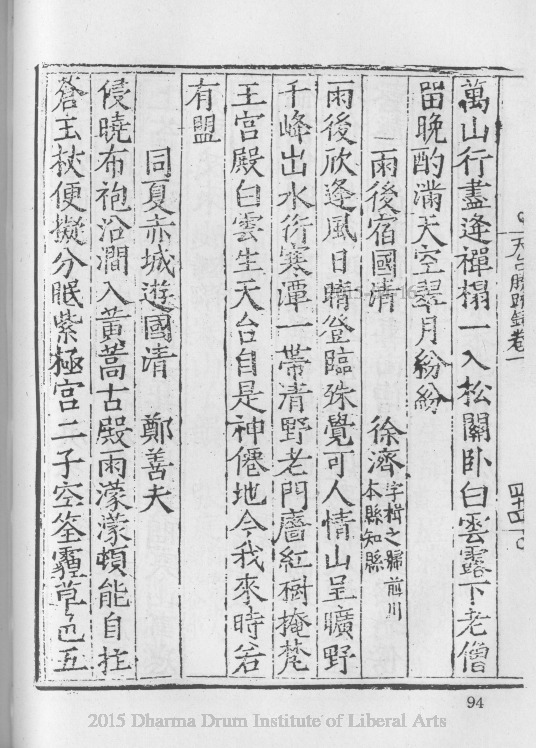 天台勝蹟錄卷一
四十四
萬山行盡逢禪榻一入松關臥白雲露下老僧
留晚酌滿天空翠月紛紛
雨後宿國清 徐濟 字楫之歸前川
本縣知縣
雨後欣逢風日晴登臨殊覺可人情山呈曠野
千峰出水衍寒潭一帶清野老門牆紅樹掩梵
王宮殿白雲生天台自是神僊地今我來時若
有盟
同夏赤城遊國清 鄭善夫
侵曉布袍沿澗入黃蒿古殿雨濛濛頓能自拄
蒼玉杖便擬分眠紫極宮二子空筌靈草色五
94
2015 Dharma Drum Institute of Liberal Arts